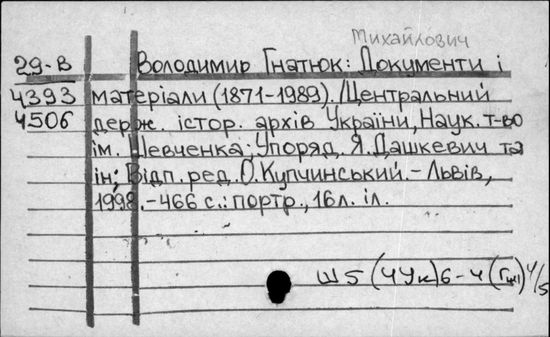 Михайлович
29-В Володимир Гнатюк: Документи і
4393 матеріали (1871-1989). /Центральний
4506 держ. істор. архів України, Наук. т-во
ім. Шевченка; Упоряд. Я. Дашкевич та
ін; Відп. ред. О. Купчинський. - Львів,
1998. - 466 с.: портр., 16 л. іл.
Ш5(4Ук)6-4
4/5